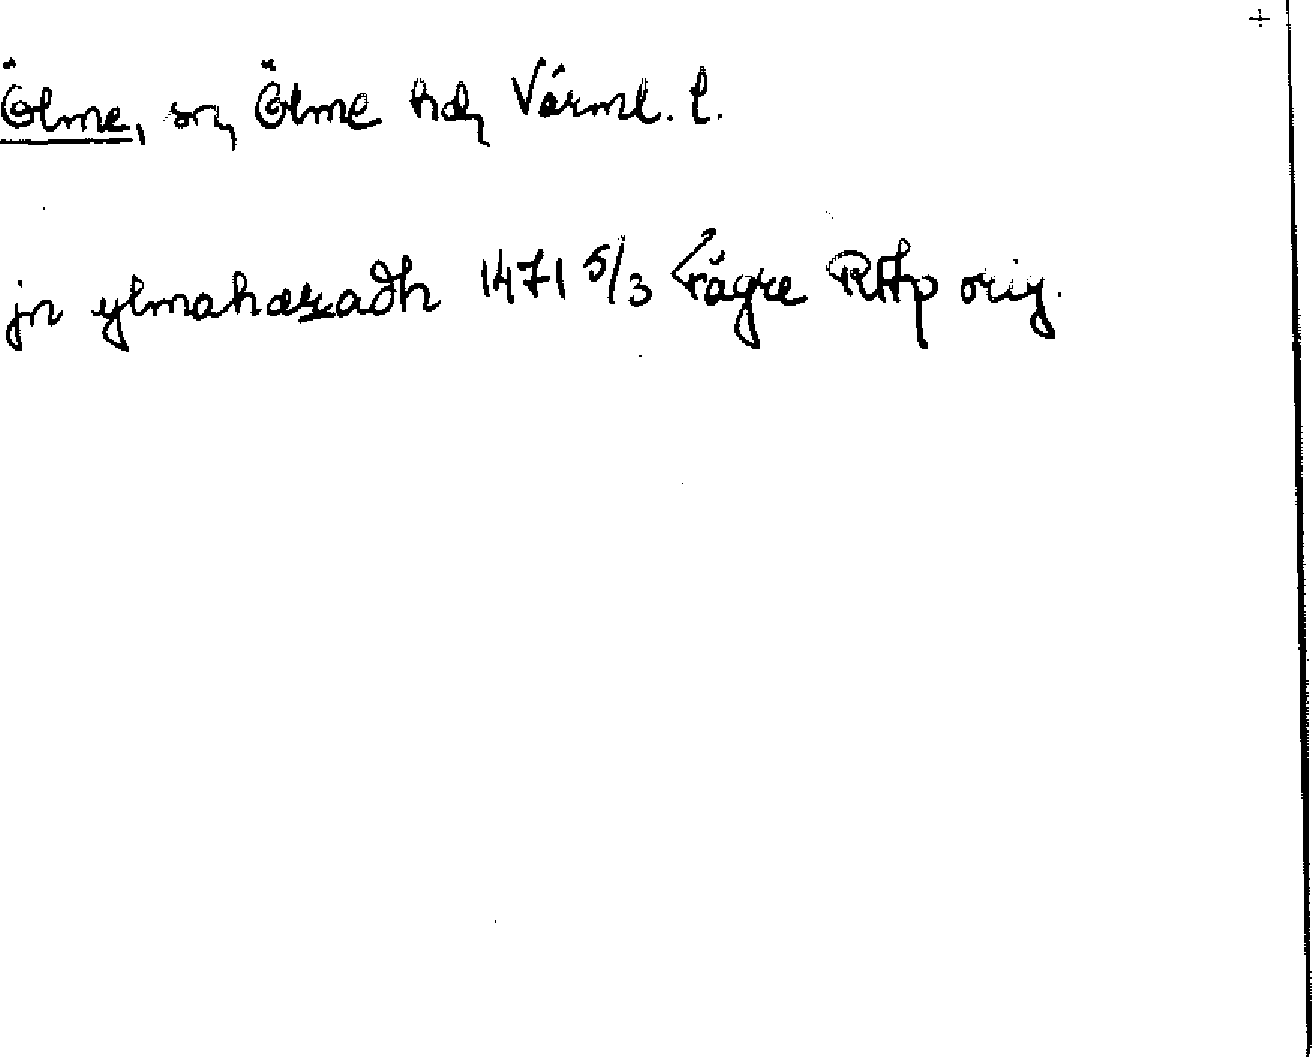 +
Ölme, sn, Ölme hd, Värml. l.
jn ylmahæradh 1471 5/3 Fägre RAp orig.